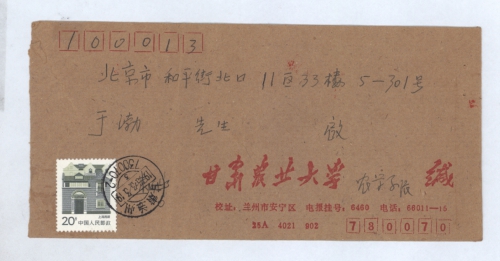 100013
北京市 和平街北口 11区33楼 5-301号
于渤 先生 收
甘肃农业大学 缄
校址：兰州市安宁区 电报挂号：6460 电话：66011—15
26A 4021 902
730070
20分
中国人民邮政